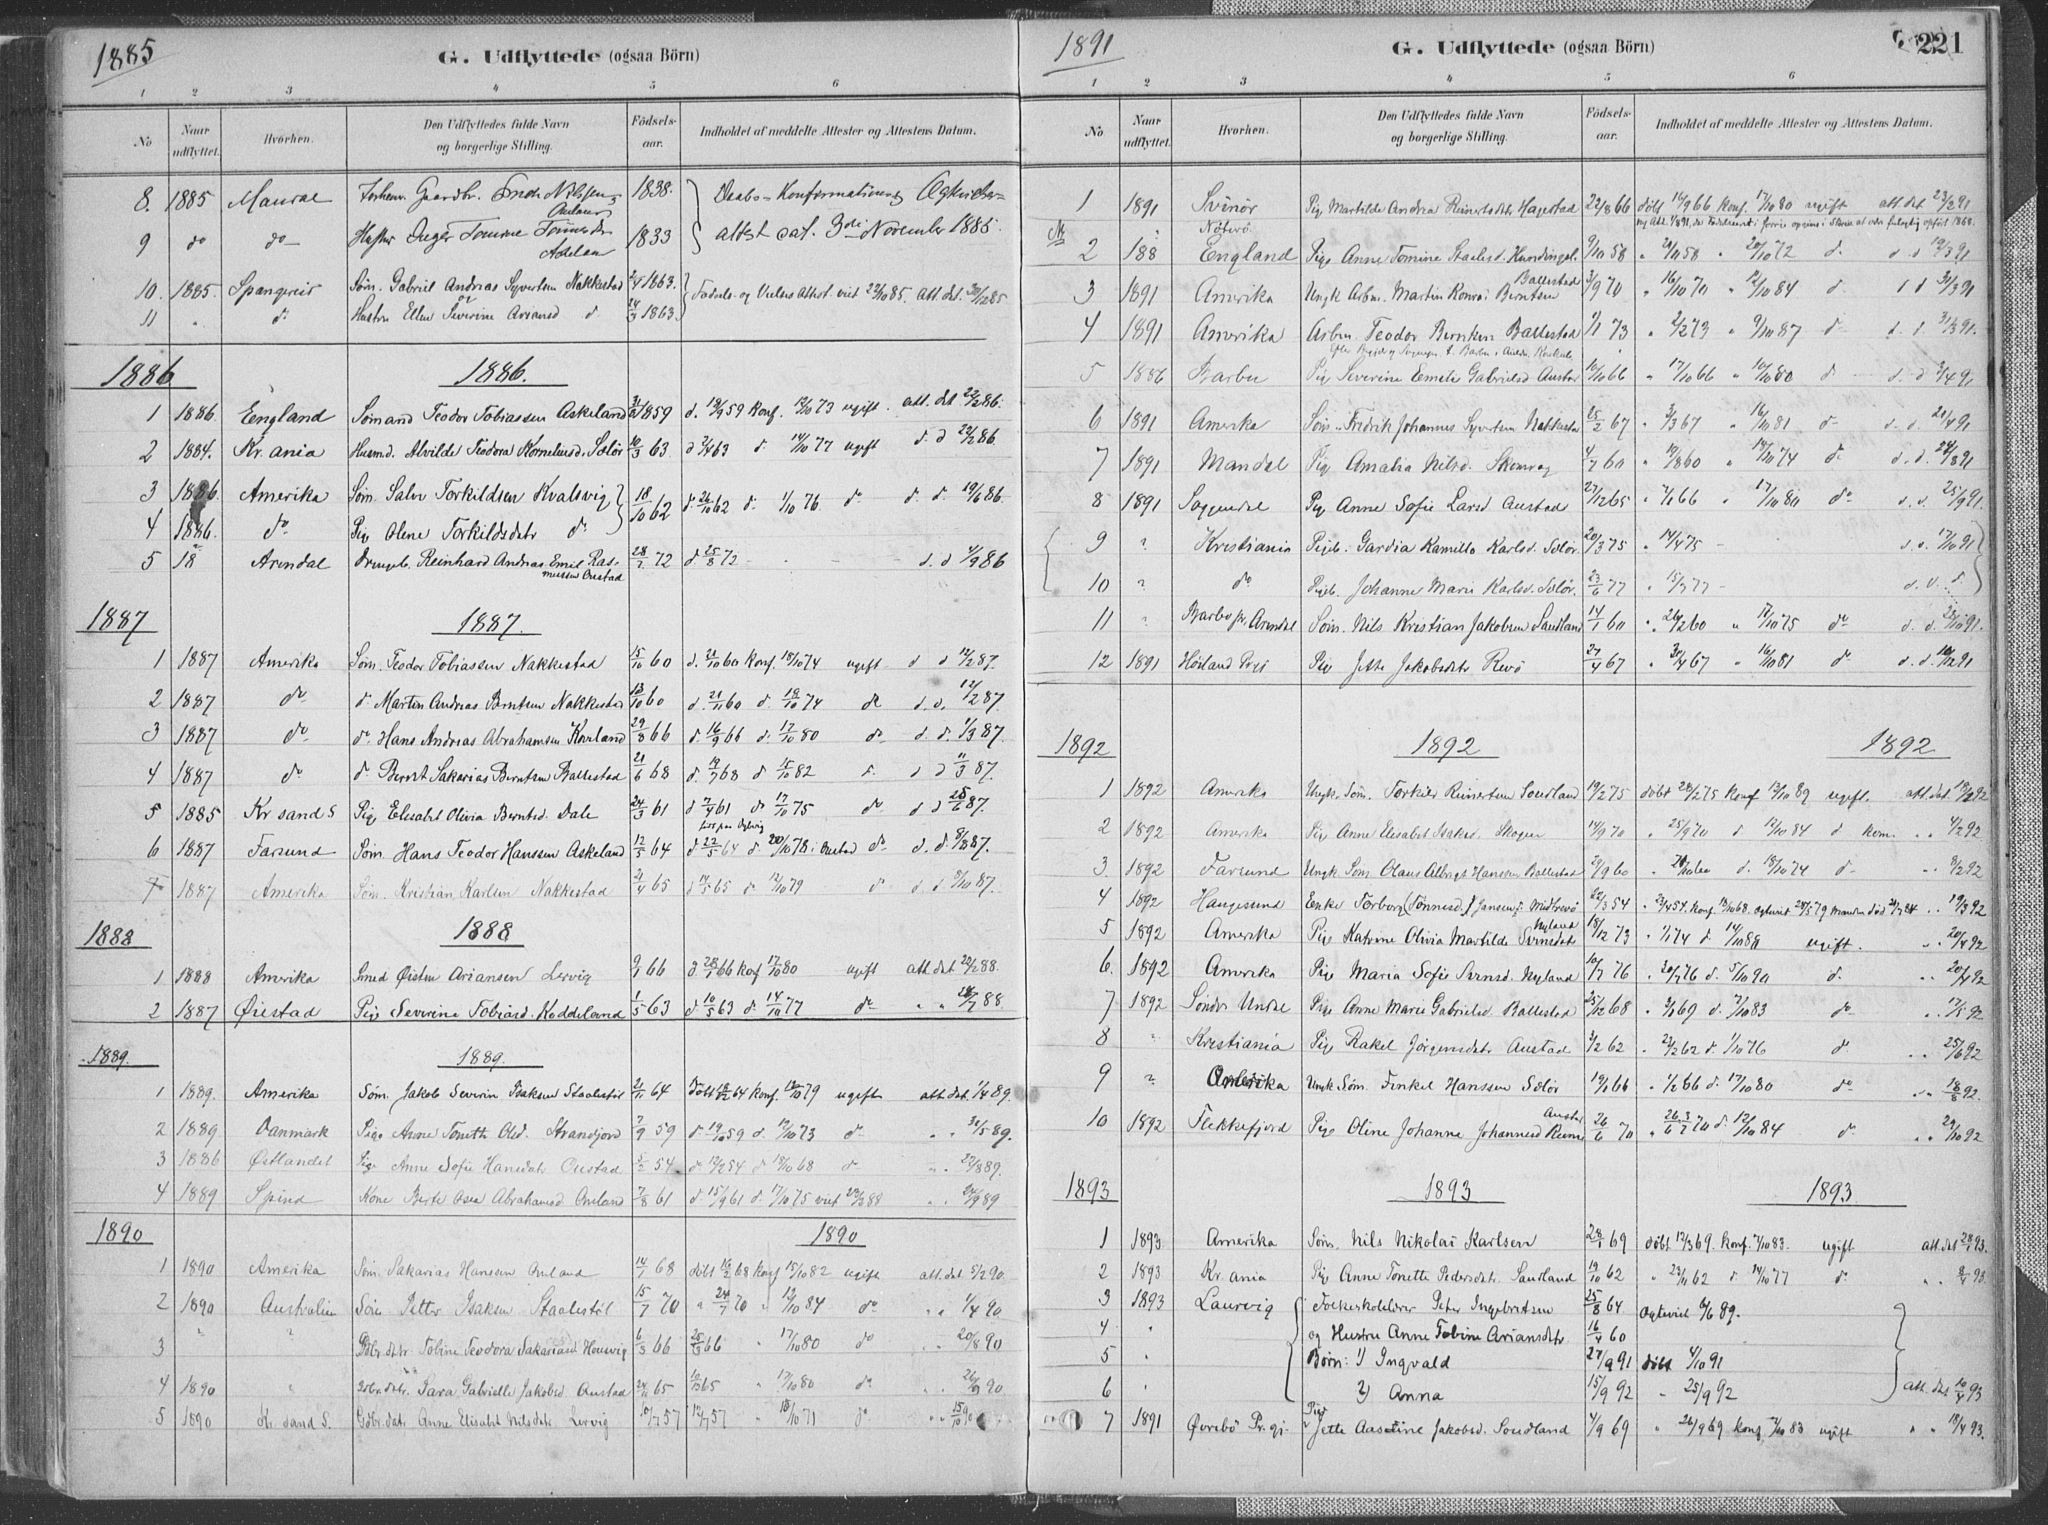 1885
G. Udflyttede (ogsaa Börn)
1 2 3 4 5 6
No Naar udflyttet. Hvorhen. Den Udflyttedes fulde Navn og borgerlige Stilling. Födsels-aar. Indholdet af meddelte Attester og Attestens Datum.
8. 1885 Mandal Nilsen 1838. Daabs- Konfirmations-
9 do do Inger 1833 attest dat. 3die November 1885.
10. 1885. Spangereid Söm. Gabriel Andreas Syvertsen Nakkestad 1863.
11 " do Hustru Ellen Severine Ariansd. do 24/3 1863. Att. dat. 30/12 85
1886 1886.
1 1886. England Sömand Teodor Tobiassen Askeland 1859 konf. 12/10 73 ugift. att. dat 22/2 86.
2 1884. Kr.ania Alvilde Teodora Korneliusd. Selör 10/3 63 d 2/4 63 d. 14/10 77 ugift d. d 22/2 86.
3 1886. Amerika Söm. Salve Torkildsen Kvalsvig 18/10 62 d. 26/10 62 d. 1/10 76 do d. d. 19/6 86.
4 1886. do Pige Olene Torkildsdtr do
5 18 Arendal Drengeb. Reinhard Andreas Emil Ras-
mussen Austad 28/7 72 d 25/8 72 d. d 4/9 86
1887 1887.
1 1887 Amerika Söm. Teodor Tobiassen Nakkestad 15/10 60 d. 21/10 60 konf 18/10 74 ugift d d 12/2 87.
2 1887 do d. Martin Andreas Berntsen Nakkestad 13/10 60 d. 21/11 60 d. 18/10 74 do d. d. 12/2 87.
3 1887 do do Hans Andreas Abrahamsen 29/8 66 d. 16/9 66 d. 17/10 80 do d. d. 1/3 87.
4 1887 do d. Bernt Sakarias Berntsen Ballestad 21/6 68 d. 19/7 68 d 15/10 82 d. d d 11/3 87.
5 1885 Kr sand S Pige Elisabet Olivia Berntsd. Dale 24/3 61 d 7/4 61 do 17/10 75 do d d 25/6 87.
6 1887 Farsund Söm. Hans Teodor Hanssen Askeland 12/5 64 d 22/5 64 d. 20/10 78 i Austad do d. d. 8/8 87.
7 1887 Amerika Söm. Kristian Karlsen Nakkestad 21/4 65 d 14/5 65 d 12/10 79 do d. d 8/10 87.
1888 1888
1 1888 Amerika Smed Østen Ariansen Lervig 9/1 66 d 28/1 66 konf 17/10 80 ugift att dat 20/2 88.
2 1887 Øiestad Pige Severine Tobiasd. Koddeland 1/5 63 d 10/5 63 d. 14/10 77 do " " 28/7 88.
1889. 1889.
1 1889. Amerika Söm. Jakob Severin Isaksen Staalestöl 21/11 64 Döbt 18/12 64 konf. 12/10 79 ugift att dat. 1/4 89.
2 1889 Danmark Pige Anne Tonette Olsd. Strandjord 7/9 59 d. 19/10 59 d. 12/10 73 do " " 31/5 89.
3 1886 Østlandet Pige Anne Sofie Hansdatr Austad 5/2 54 do 12/2 54 d 18/10 68 do " " 27/8 89.
4 1889 Spind Kone Berte Asea Abrahamsd. Omland 7/8 61 d. 15/9 61 d. 17/10 75 viet 88 " " 24/9 89
1890 1890
1 1890 Amerika Söm. Sakarias Hanssen Omland 14/1 68 döbt 16/2 68 konf 15/10 82 ugift att. dat 5/2 90.
2 1890 Australien Söm. Petter Isaksen Staalestöl 15/7 70 " 24/7 70 " 12/10 84 do " " 1/4 90.
3 " " Gdbr.datr Tobine Teodora Sakariasd 6/3 66 25/3 66 " 17/10 80 do " 20/8 90
4 1890 " Gdbr.datr. Sara Gabrielle Jakobsd. Austad 24/11 65 10/12 65 " 17/10 80 do " " 26/9 90
5 1890 Kr. sand S. Gdbr. datr. Anne Elisabet Nilsdatr. Lervig 10/7 57 12/7 57 " 15/10 71 do " " 15/10 90
1891
G. Udflyttede (ogsaa Börn)
221
1 2 3 4 5 6
No Naar udflyttet. Hvorhen. Den Udflyttedes fulde Navn og borgerlige Stilling. Födsels-aar. Indholdet af meddelte Attester og Attestens Datum.
1 1891 Svinör Pige Martilde Andrea Reinertsdatr Hagestad 22/8 66 döbt 14/9 66 konf. 17/10 80 ugift att. dat 23/2 91
2 188 England Pige Anne Tomine Staalesd. 9/10 58 " 24/10 58 " 20/10 72 d. d. d 19/3 91
3 1891 Amerika Ungk. Arbm. Martin Konrad Berntsen Ballestad 3/9 70 " 16/10 70 " 12/10 84 d d 31/3 91
4 1891 Amerika Arbm. Teodor Berntsen Ballestad 1/1 73 " 2/2 73 " 9/10 87 do d. d. 31/3 91.
5 1886 Barbu Pige Severine Emelie Gabrielsd Austad 10/10 66 " 17/10 66 " 10/10 80 d d. d 3/4 91
6 1891 Amerika Söm. Fredrik Johannes Syvertsen Nakkestad 25/2 67 " 3/3 67 " 16/10 81 do d. d. 21/4 91
7 1891 Mandal Pige Amalia Nilsd. 4/7 60 " 19/8 60 " 14/10 74 do d. d. 24/8 91
8 1891 Soggendal Pige Anne Sofie Larsd Austad 27/12 65 " 7/1 66 " 17/10 80 do d. d. 25/9 91.
9 " Kristiania Pigeb. Gardia Kamilla Karlsd. Selör 20/3 75 " 14/4 75 - d. d. 17/10 91
10 " do Pigeb. Johanne Marie Karlsd. Selör. 23/6 77 " 15/7 77 - d. d. d.
11 " Barbo pr. Arendal Söm. Nils Kristian Jakobsen Sandland 14/1 60 " 26/2 60 " 17/10 75 do d. d. 91.
12 1891 Höiland Prgj Pige Jette Jakobsdatr Revö 27/4 67 " 30/4 67 " 16/10 81 do d. d. 10/12 91
1892 1892 1892
1 1892 Amerika Ungk. Söm. Torkild Reinertsen Sandland 19/2 75 döbt 28/2 75 konf 13/10 89 ugift. att. dat. 19/2 92
2 1892 Amerika Pige Anne Elisabet Isaksd. Skogen 14/9 70 " 25/9 70 d 12/10 84 d " " 4/2 92
3. 1892 Farsund Ungk Söm. Olaus Albregt Hanssen Ballestad 29/9 60 60 d. 18/10 74 d. " " 8/2 92
4 1892 Haugesund Enke Torborg (Tönnesd.) Jansen Midtrevö 22/3 54 " 23/4 54. konf. 18/10 68. manden död " " 19/3 92
5 1892 Amerika Pige Katrine Olivia Martilde Svensdatr Nyland 18/12 73 " 1/1 74 d. 14/10 88 ugift. " " 20/4 92
6. 1892 Amerika Pige Maria Sofie Svensd. Nyland 10/7 76 " 30/7 76 d. 5/10 90 d. " " 20/4 92
7 1892 Söndr. Undal Pige Anne Marie Gabrielsd Ballestad 25/12 68 " 3/1 69 d. 7/10 83 do " " 17/5 92
8 " Kristiania Pige Rakel Jörgensdatr Austad 3/2 62 " 23/2 62 d. 1/10 76 do " " 25/6 92
9 " Amerika Ungk Söm. Tenkel Hanssen Selör 19/1 66 " 1/2 66 d. 17/10 80 do " " 18/8 92.
10 1892 Flekkefjord Pige Oline Johanne Johannesd 26/6 70 " 3/7 70 d 12/10 84 d. " " 29/10 92
1893 1893 1893
1 1893 Amerika Söm. Nils Nikolai Karlsen 28/1 69 döbt 12/3 69. konf. 7/10 83. ugift att. dat 28/1 93.
2 1893 Kr. ania Pige Anne Tonette Pedersdatr. Sandland 19/10 62 " 23/11 62 d 14/10 77 d. " " 8/4 93.
3 1893 Laurvig Folkeskolelærer Peter Ingebretsen 25/8 64 Ægteviet 6/6 89.
4 " og Hustru Anne Tobine Ariansdtr. 16/4 60
5 " Börn: 1) Ingvald 27/9 91 döbt 4/10 91
6 " 2) Anna 15/9 92 " 25/9 92 att. dat 10/4 93
7 1891 Øvrebö Pr.gj. Pige Jette Aastine Jakobsd. Sandland 4/9 69 " 26/9 69 konf. 7/10 83 ugift " " 18/4 93.